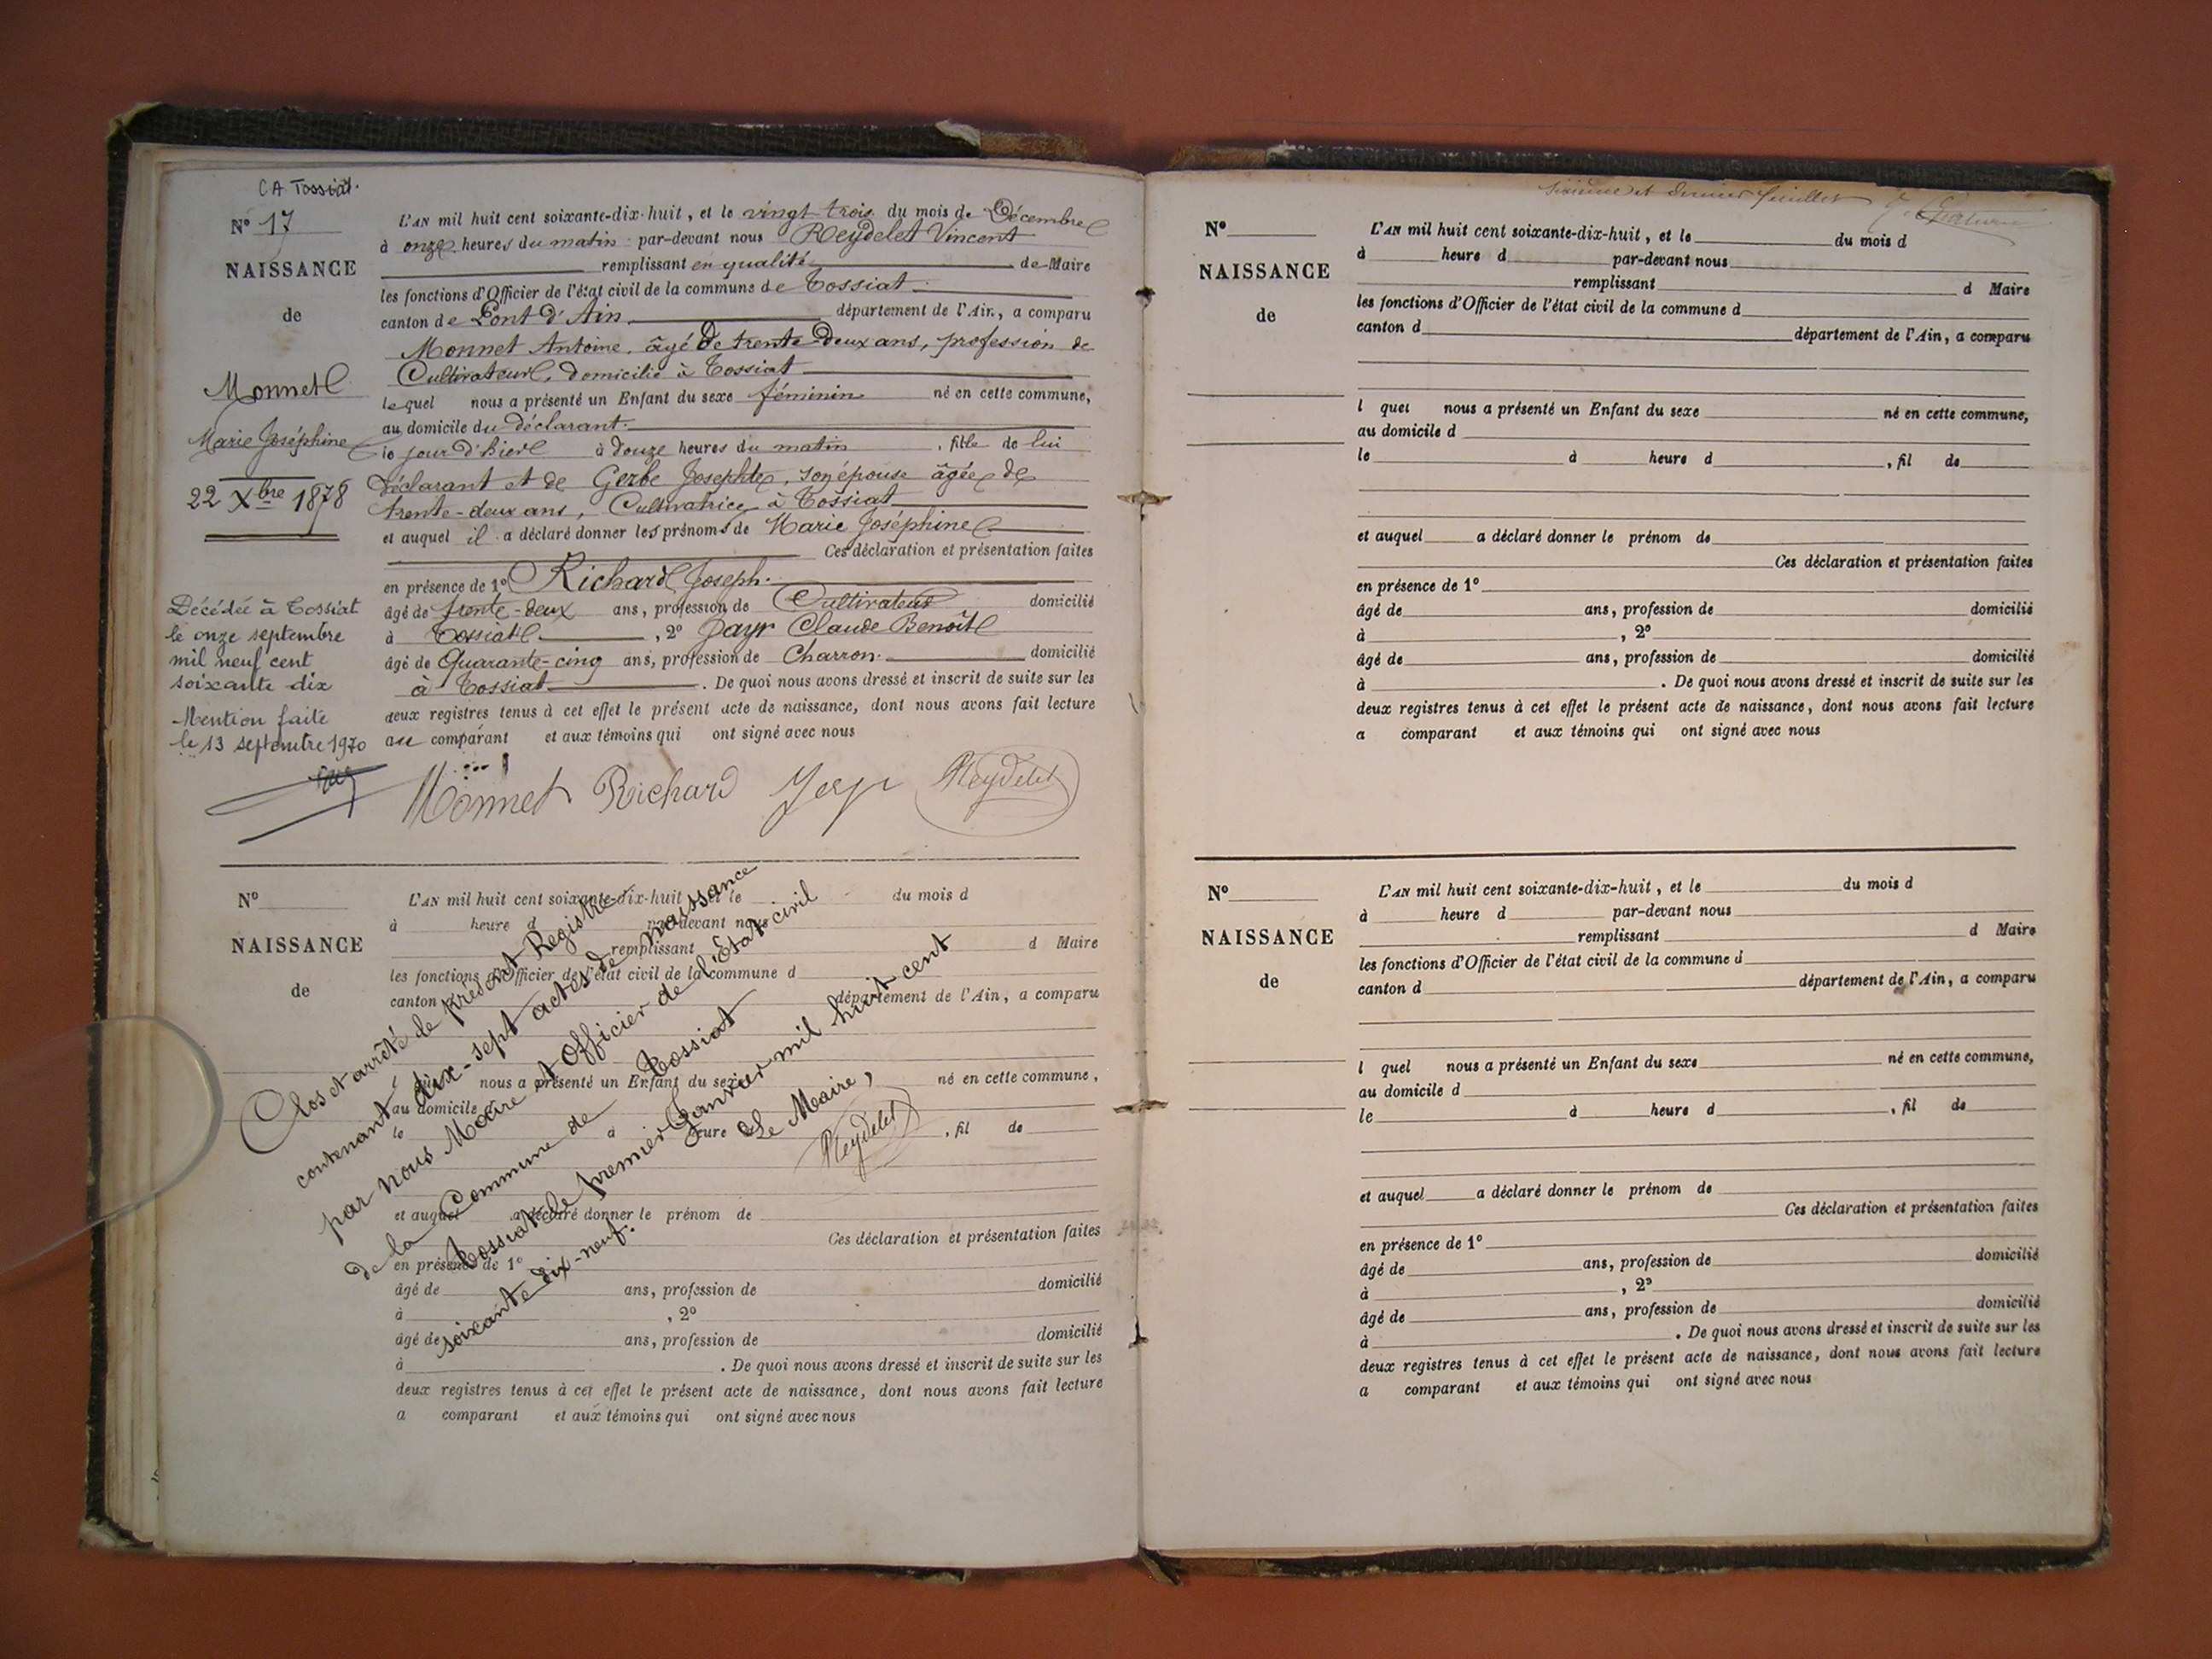 CA Tossiat.
N° 17
NAISSANCE
de
Monnet
Marie Joséphine
22 Xbre 1878
Décédée à Tossiat
le onze septembre
mil neuf cent
soixante dix
Mention faite
le 13 septembre 1970
L'AN mil huit cent soixante-dix-huit, et le vingt trois du mois de Décembre
à onze heures du matin par-devant nous Reydelet Vincent
remplissant en qualité de Maire
les fonctions d'Officier de l'état civil de la commune de Tossiat
canton de Pont d'Ain département de l'Ain, a comparu
Monnet Antoine, âgé de trente-deux ans, profession de
Cultivateur, domicilié à Tossiat
lequel nous a présenté un Enfant du sexe féminin né en cette commune,
au domicile du déclarant.
le jour d'hier à douze heures du matin, fille de lui
déclarant et de Gerbe Josephte, son épouse âgée de
trente-deux ans, Cultivatrice à Tossiat
et auquel il a déclaré donner les prénoms de Marie Joséphine
Ces déclaration et présentation faites
en présence de 1° Richard Joseph.
âgé de trente-deux ans, profession de Cultivateur domicilié
à Tossiat, 2° Claude Benoît
âgé de Quarante-cinq ans, profession de Charron. domicilié
à Tossiat. De quoi nous avons dressé et inscrit de suite sur les
deux registres tenus à cet effet le présent acte de naissance, dont nous avons fait lecture
au comparant et aux témoins qui ont signé avec nous
Monnet Richard Reydelet
N°
NAISSANCE
de
L'AN mil huit cent soixante-dix-huit, et le du mois d
à heure d par-devant nous
remplissant d Maire
les fonctions d'Officier de l'état civil de la commune d
canton d département de l'Ain, a comparu
l quel nous a présenté un Enfant du sexe né en cette commune,
au domicile d
le à heure d, fil de
et auquel a déclaré donner le prénom de
Ces déclaration et présentation faites
en présence de 1°
âgé de ans, profession de domicilié
à , 2°
âgé de ans, profession de domicilié
à . De quoi nous avons dressé et inscrit de suite sur les
deux registres tenus à cet effet le présent acte de naissance, dont nous avons fait lecture
a comparant et aux témoins qui ont signé avec nous
Clos et arrêté de présent Registre
contenant dix-sept actes de naissance
par nous Maire et Officier de l'État civil
de la Commune de Tossiat
Tossiat le premier Janvier mil huit cent
soixante dix-neuf.
Le Maire,
Reydelet
dernier feuillet
N°
NAISSANCE
de
L'AN mil huit cent soixante-dix-huit, et le du mois d
à heure d par-devant nous
remplissant d Maire
les fonctions d'Officier de l'état civil de la commune d
canton d département de l'Ain, a comparu
l quel nous a présenté un Enfant du sexe né en cette commune,
au domicile d
le à heure d, fil de
et auquel a déclaré donner le prénom de
Ces déclaration et présentation faites
en présence de 1°
âgé de ans, profession de domicilié
à , 2°
âgé de ans, profession de domicilié
à . De quoi nous avons dressé et inscrit de suite sur les
deux registres tenus à cet effet le présent acte de naissance, dont nous avons fait lecture
a comparant et aux témoins qui ont signé avec nous
N°
NAISSANCE
de
L'AN mil huit cent soixante-dix-huit, et le du mois d
à heure d par-devant nous
remplissant d Maire
les fonctions d'Officier de l'état civil de la commune d
canton d département de l'Ain, a comparu
l quel nous a présenté un Enfant du sexe né en cette commune,
au domicile d
le à heure d, fil de
et auquel a déclaré donner le prénom de
Ces déclaration et présentation faites
en présence de 1°
âgé de ans, profession de domicilié
à , 2°
âgé de ans, profession de domicilié
à . De quoi nous avons dressé et inscrit de suite sur les
deux registres tenus à cet effet le présent acte de naissance, dont nous avons fait lecture
a comparant et aux témoins qui ont signé avec nous